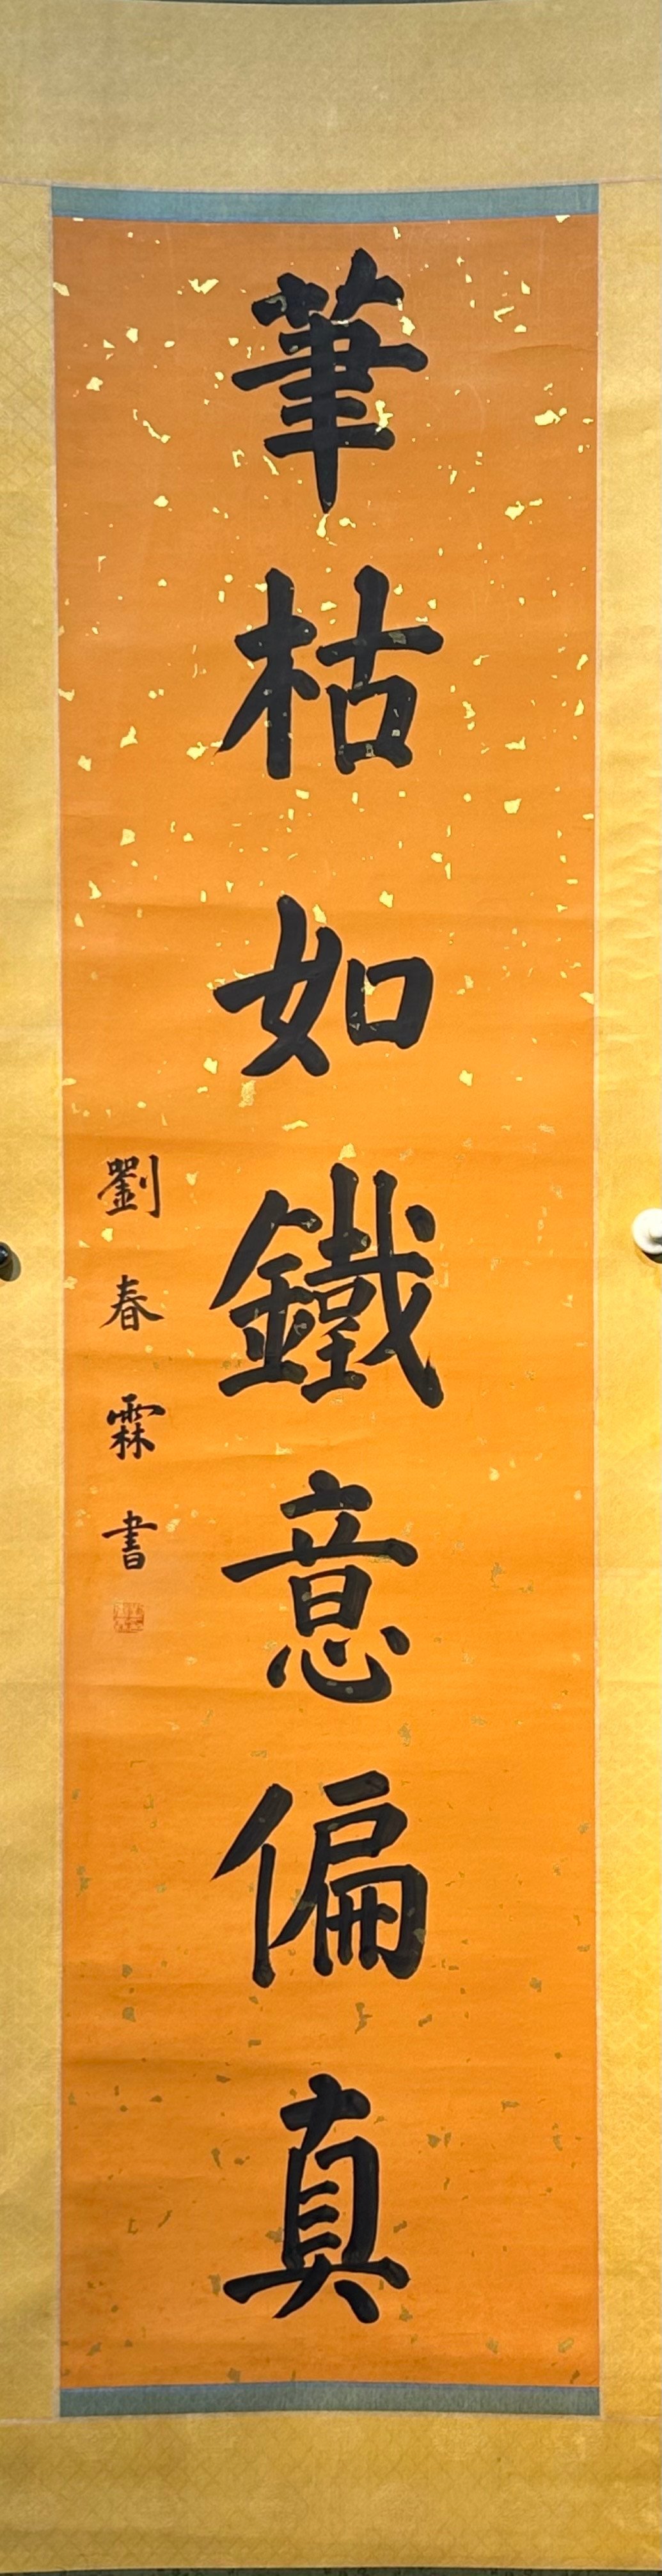 筆枯如鐵意偏真
劉春霖書